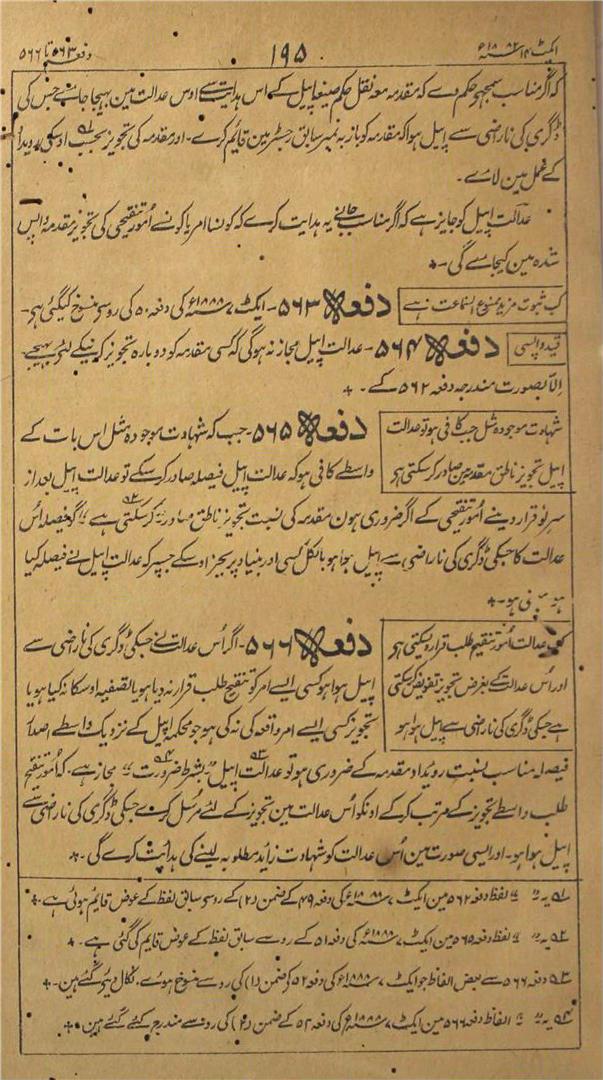 ایکٹ ۱۴ ۱۸۸۲ء
۱۹۵
دفعہ ۵۶۳ تا ۵۶۶
کہ اگر مناسب سمجھے حکم دے کہ مقدمہ معہ نقل حکم صیغہ اپیل کے اس ہدایت سے اوس عدالت مین بہیجا جائے جس کی
ڈگری کی ناراضی سے اپیل ہوا کہ مقدمہ کو باز بہ نمبر سابق رجسٹر مین قائم کرے۔ اور مقدمہ کی تجویز بحسب اوسکی رویداد
کے عمل مین لائے۔
عدالت اپیل کو جایز ہے کہ اگر مناسب جانے یہ ہدایت کرے کہ کونسا امر یا کونسے اُمور تنقیحی کی تجویز مقدمہ واپس
شدہ مین کیجاے گی۔
کب ثبوت مزید ممنوع السماعت ہے
دفعہ ۵۶۳۔ ایکٹ ۷ ۱۸۸۸ء کی دفعہ ۵۰ کی روسے منسوخ کیگئی ہے۔
قید واپسی
دفعہ ۵۶۴۔ عدالت اپیل مجاز نہ ہوگی کہ کسی مقدمہ کو دوبارہ تجویز کرنیکے لئے بہیجے
اِلّا بصورت مندرجہ دفعہ ۵۶۲ کے۔
شہادت موجودہ مثل جب کافی ہو تو عدالت
اپیل تجویز ناطق مقدمہ مین صادر کرسکتی ہے
دفعہ ۵۶۵۔ جب کہ شہادت موجودہ مثل اس بات کے
واسطے کافی ہو کہ عدالت اپیل فیصلہ صادر کرسکے تو عدالت اپیل بعد از
سر نو قرار دینے اُمور تنقیحی کے اگر ضروری ہون مقدمہ کی نسبت تجویز ناطق صادر کرسکتی ہے گو فیصلہ اُس
عدالت کا جسکی ڈگری کی ناراضی سے اپیل ہوا ہو بالکل کسی اور بنیاد پر بجز اوسکے جسپر کہ عدالت اپیل نے فیصلہ کیا
ہو مبنی ہو۔
عدالت اُمور تنقیح طلب قرار دیسکتی ہے
اور اُس عدالت کے بغرض تجویز تفویض کرسکتی
ہے جسکی ڈگری کی ناراضی سے اپیل ہوا ہو
دفعہ ۵۶۶۔ اگر اُس عدالت نے جسکی ڈگری کی ناراضی سے
اپیل ہوا ہو کسی ایسے امر کو تنقیح طلب قرار نہ دیا ہو یا تصفیہ اوسکا نہ کیا ہو یا
تجویز کسی ایسے امر واقعہ کی نہ کی ہو جو محکمہ اپیل کے نزدیک واسطے اصدار
فیصلہ مناسب بنسبت رویداد مقدمہ کے ضروری ہو تو عدالت اپیل بشرط ضرورت مجاز ہے۔ کہ اُمور تنقیح
طلب واسطے تجویز کے مرتب کرکے اونکو اُس عدالت مین تجویز کے لئے مُرسل کرے جسکی ڈگری کی ناراضی سے
اپیل ہوا ہو۔ اور ایسی صورت مین اُس عدالت کو شہادت زاید مطلوبہ لینے کی ہدایت کرے گی۔
۵۱ یہ لفظ دفعہ ۵۶۲ مین ایکٹ ۷ ۱۸۸۸ء کی دفعہ ۴۹ کے ضمن (۲) کے رو سے سابق لفظ کے عوض قایم ہوئی ہے۔
۵۲ یہ لفظ دفعہ ۵۶۵ مین ایکٹ ۷ ۱۸۸۸ء کی دفعہ ۵۱ کے رو سے سابق لفظ کے عوض قایم کی گئی ہے۔
۵۳ دفعہ ۵۶۶ سے بعض الفاظ جو ایکٹ ۷ ۱۸۸۸ء کی دفعہ ۵۲ کے ضمن (۱) کی رو سے منسوخ ہوے۔ نکال دیئے گئے ہین۔
۵۴ یہ الفاظ دفعہ ۵۶۶ مین ایکٹ ۷ ۱۸۸۸ء کی دفعہ ۵۲ کے ضمن (۲) کی رو سے مندرج کئے گئے ہین۔